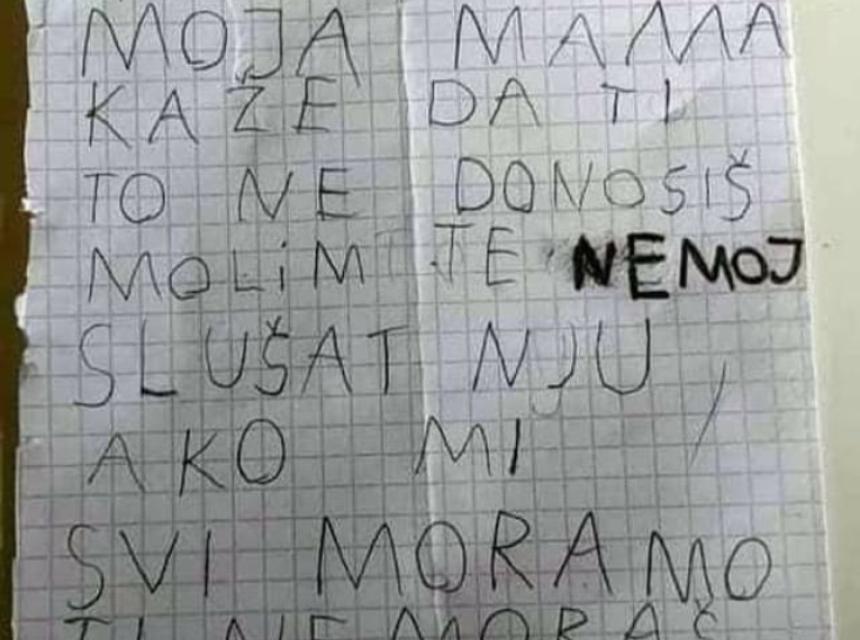 MOJA MAMA
KAŽE DA TI
TO NE DONOSIŠ
MOLiM TE NEMOJ
SLUŠAT NJU,
AKO MI
SVI MORAMO
TI NE MORAŠ